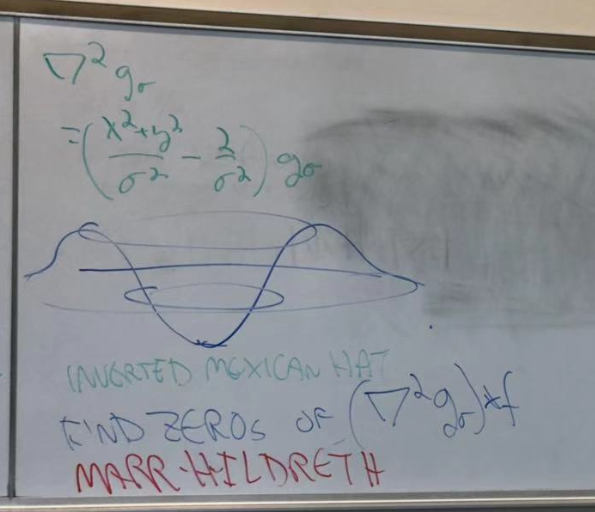 ∇²gσ
= (x²+y²/σ² − 2/σ²) gσ
INVERTED MEXICAN HAT
FIND ZEROS OF (∇²gσ)*f
MARR-HILDRETH